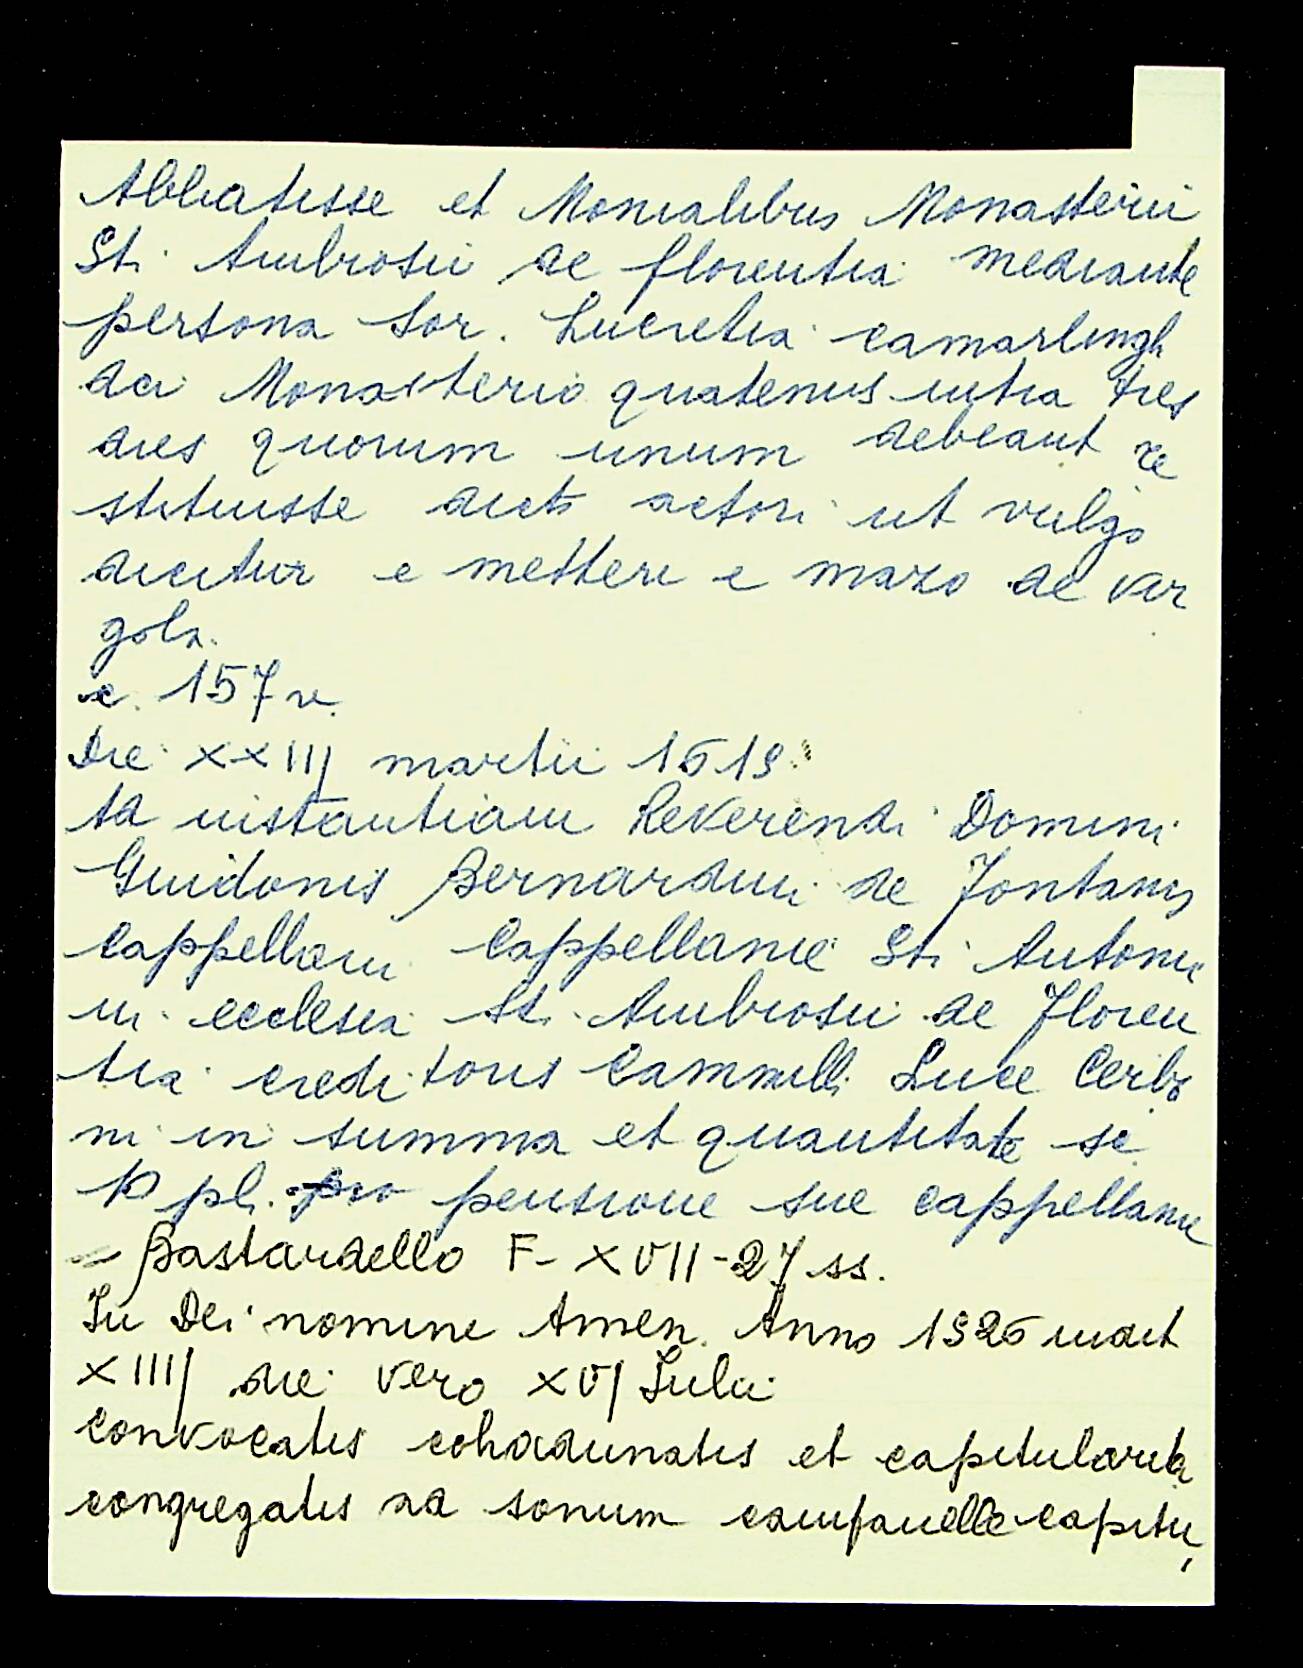 Abbatisse et Monialibus Monasterii
Sti Ambrosii de florentia mediante
persona Sor. Lucretia camarlingh
dci Monasterio quatenus intra tres
dies quorum unum debeant re
stituisse dicto actori ut vulgo
dicitur e mettere e mazo de ver
gola.
c. 157 v.
Die XXIIJ martii 1519
Ad instantiam Reverendi Domini
Guidonis Bernardini de Fontanis
Cappellani Cappellanie Sti Antonii
in ecclesia St. Ambrosii de Floren
tia creditoris Cammilli Luce Cerbo
ni in summa et quantitate se
10 pl. pro pensione sue cappellanie
= Bastardello F- XVII-27 ss.
In Dei nomine Amen. Anno 1526 indict
XIIIJ die vero XVJ Iulii
convocatis cohadunatis et capitularit
congregatis ad sonum campanelle capitu